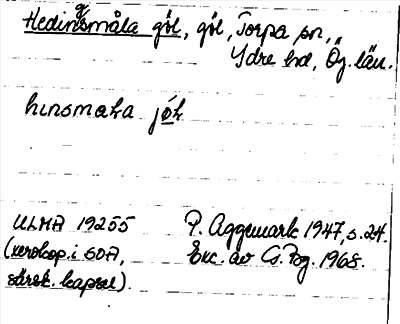 Hedingsmåla göl, göl, Torpa sn.,
Ydre hd, Ög. län.
hinsmaka jöh
ULMA 19255
(xerokop. i SOA,
särsk. kapsel).
P. Aggemark 1947, s. 24.
Exc. av G. Bg. 1968.